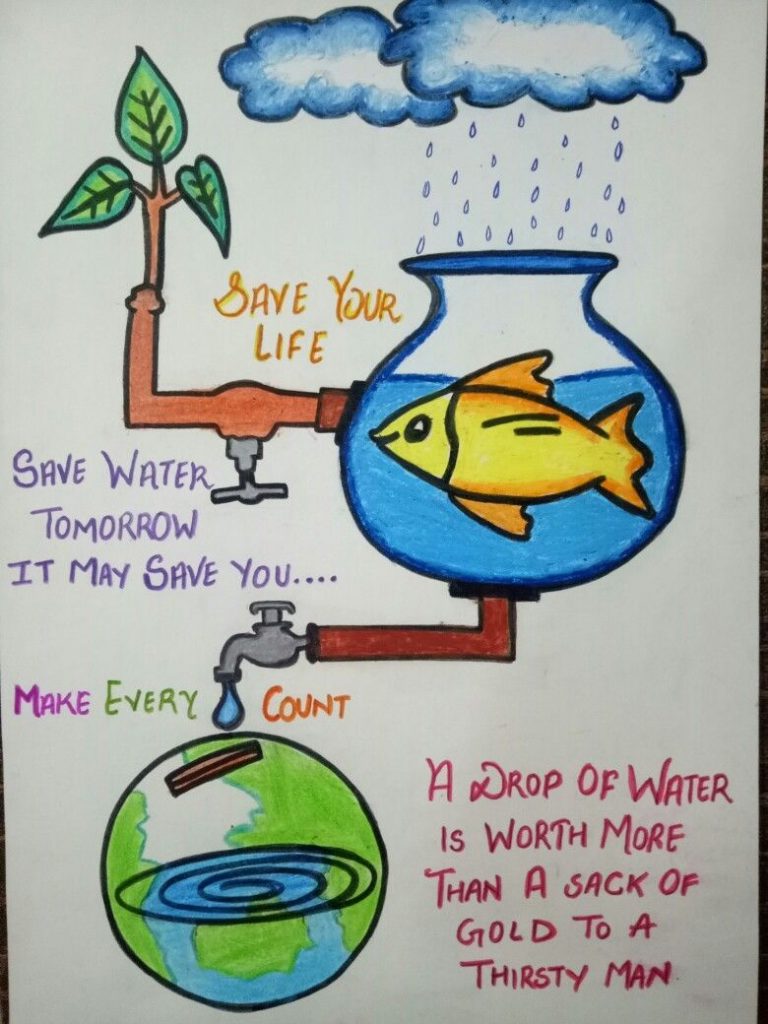 SAVE YOUR
LIFE
SAVE WATER
TOMORROW
IT MAY SAVE YOU....
MAKE EVERY COUNT
A DROP OF WATER
IS WORTH MORE
THAN A SACK OF
GOLD TO A
THIRSTY MAN